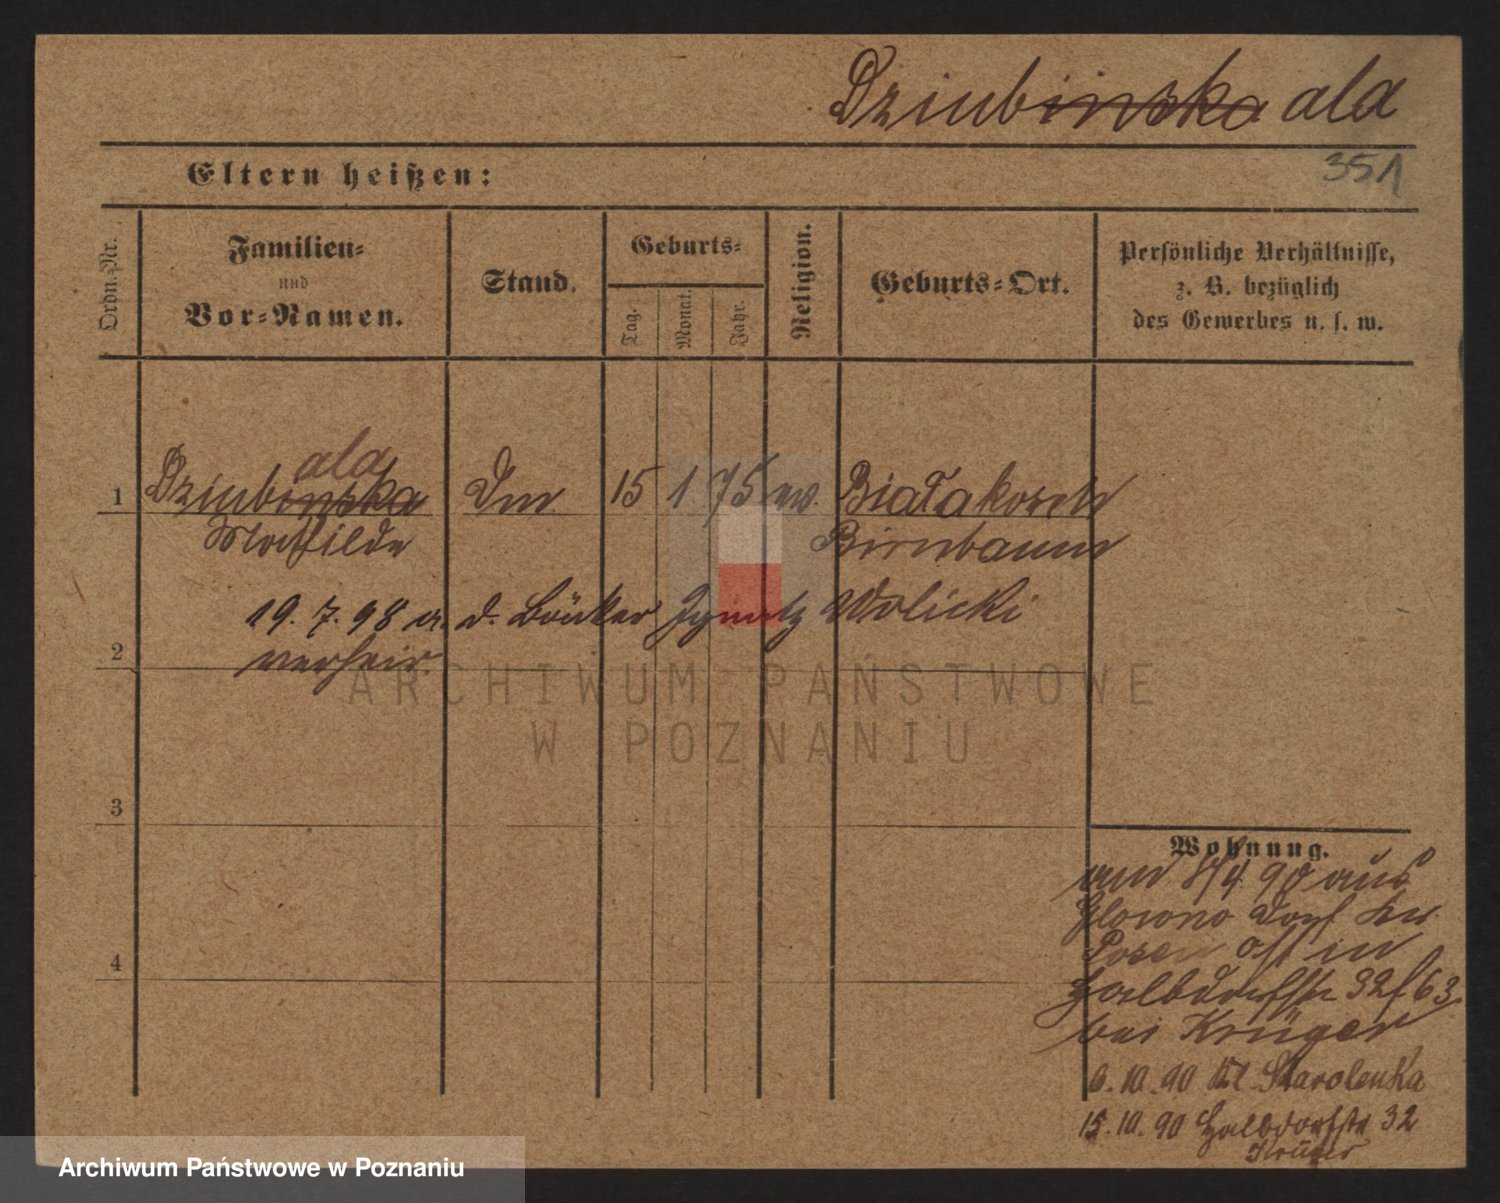 Dziubinska ala
351
Eltern heißen:
Ordn.-Nr.
Familien-
und
Vor-Namen.
Stand.
Geburts-
Tag.
Monat.
Jahr.
Religion.
Geburts-Ort.
Persönliche Verhältnisse,
z. B. bezüglich
des Gewerbes u. s. w.
ala
1 Dziubinska 15 1 75 Białakosch
Mathilde Birnbaum
19. 7. 98 a. d. Böttcher Ignatz Wolicki
2 verheir.
ARCHIWUM PAŃSTWOWE
W POZNANIU
3
Wohnung.
8/4 90 aus
Glowno Dorf Kr.
Posen in
4
Halbdorfstr 32
bei Krüger
6.10.90 Starolenka
15.10.90 Halbdorfstr 32
Krüger
Archiwum Państwowe w Poznaniu